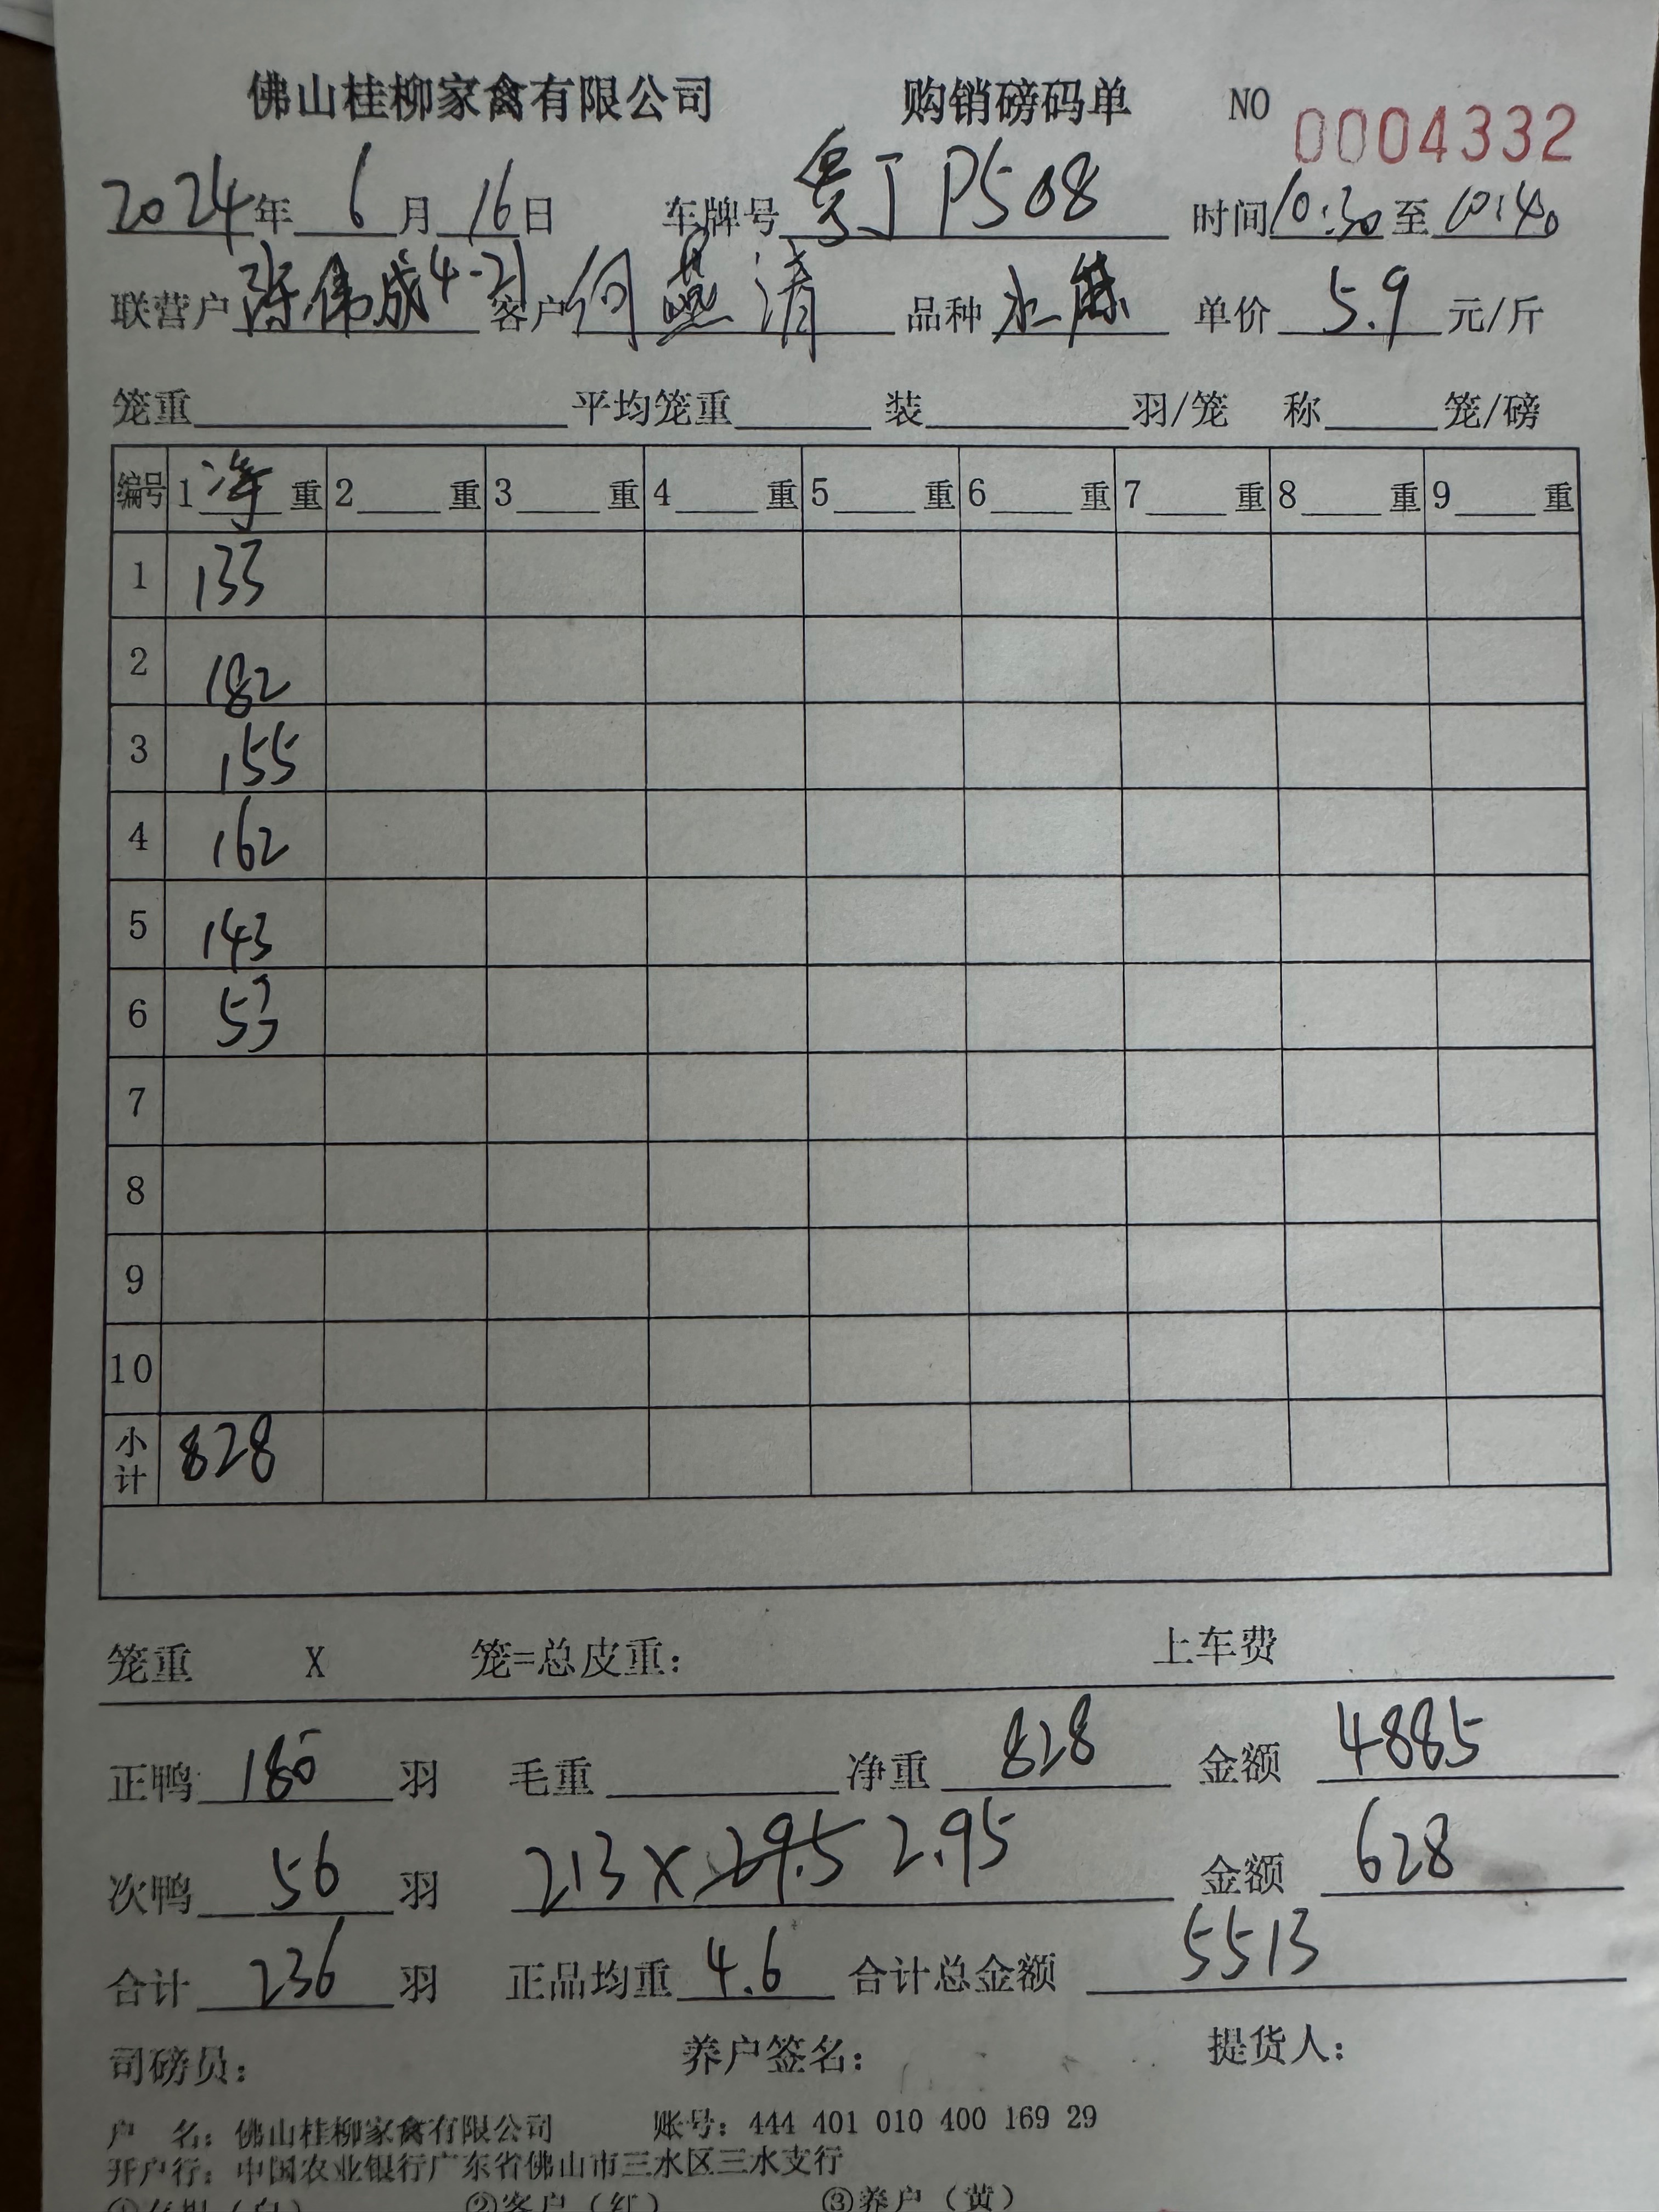 佛山桂柳家禽有限公司 购销磅码单 NO 0004332
2024年 6月 16日 车牌号 粤J P508 时间 10:30 至 10:40
联营户 陈伟成4-21 客户 何燕清 品种 水麻 单价 5.9 元/斤
笼重 平均笼重 装 羽/笼 称 笼/磅
编号 1 净 重 2 重 3 重 4 重 5 重 6 重 7 重 8 重 9 重
1 133
2 182
3 155
4 162
5 143
6 53
7
8
9
10
小计 828
笼重 X 笼=总皮重: 上车费
正鸭 180 羽 毛重 净重 828 金额 4885
次鸭 56 羽 213 X 29.5 2.95 金额 628
合计 236 羽 正品均重 4.6 合计总金额 5513
司磅员: 养户签名: 提货人:
户 名: 佛山桂柳家禽有限公司 账号: 444 401 010 400 169 29
开户行: 中国农业银行广东省佛山市三水区三水支行
①存根(白) ②客户(红) ③养户(黄)